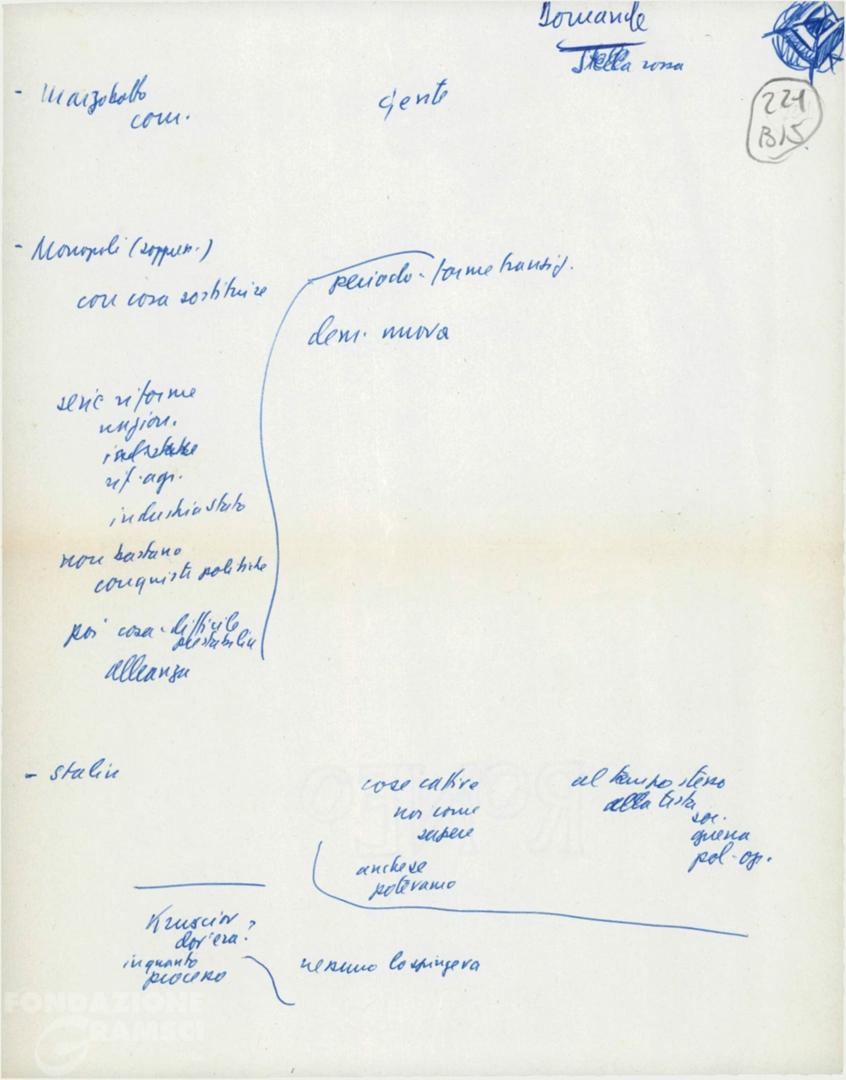 Domande
Stella rossa
221
B15
- Marzabotto
com.
gente
- Monopoli (soppr.)
con cosa sostituire
periodo - forme transiz.
dem. nuova
serie riforme
region.
rif. agr.
industria stato
non bastano
conquiste politiche
poi cosa - difficile
prestabilire
alleanza
- Stalin
cose cattive
noi come
sapere
anche se
potevamo
al tempo stesso
alla testa
soc.
guerra
pol. op.
Krusciov
dov'era?
in quanto
processo
nessuno lo spingeva
FONDAZIONE
GRAMSCI